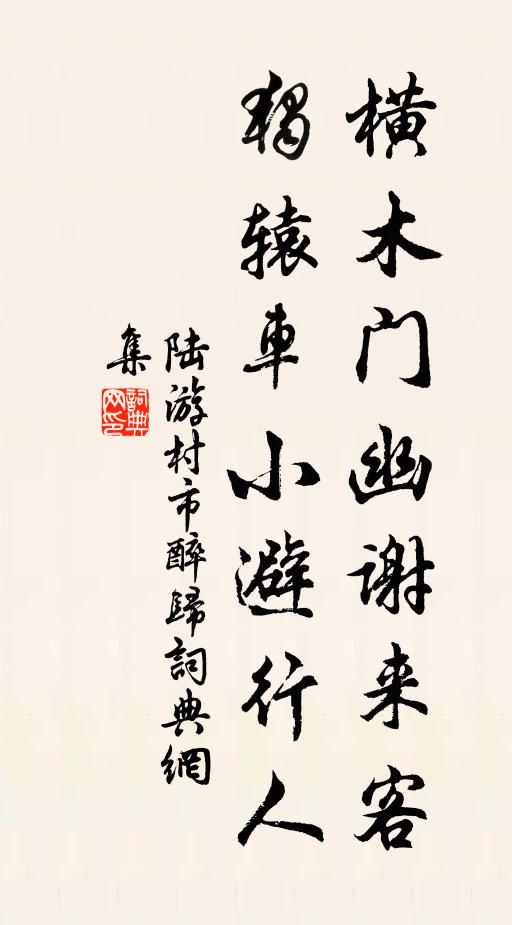 横木门幽谢来客
独辕車小避行人
陆游村市醉歸詞典網
集
詞典
网印